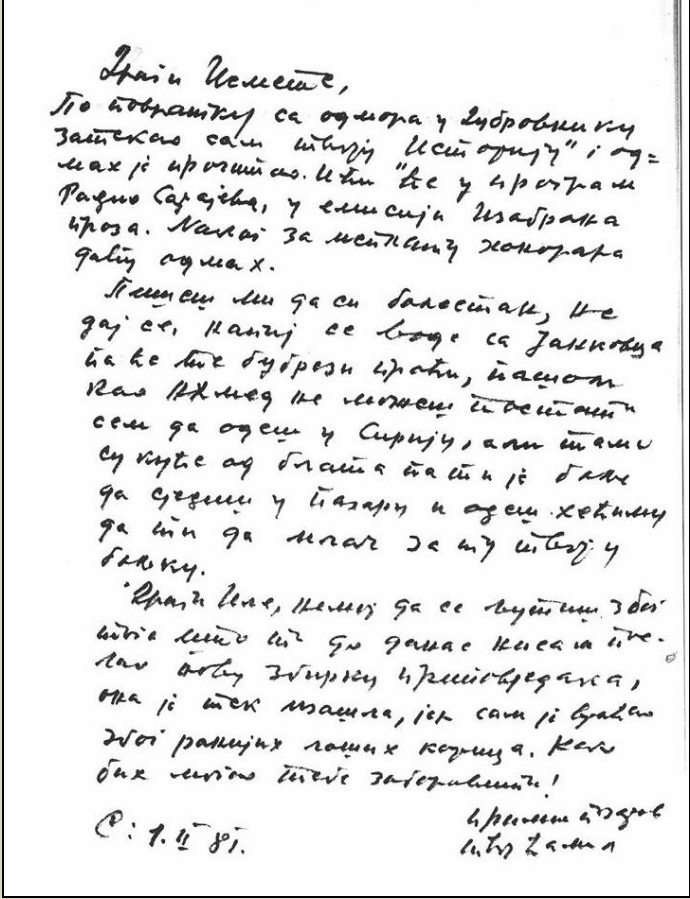 Драги Исмете,
По повратку са одмора у Дубровнику
затекао сам твоју "Историју" и од=
мах је прочитао. Ићи ће у програм
Радио Сарајева, у емисији Изабрана
проза. Налог за исплату хонорара
дају одмах.
Пишеш ми да си болестан, не
дај се, напиј се воде са Јанковца
па ће ти бубрези проћи, пашом
као Ахмед не можеш постати
сем да одеш у Сирију, али тамо
су куће од блата па ти је боље
да сједиш у Пазару и одеш хећиму
да ти да мелем за ту твоју
бољку.
Драги Исме, немој да се љутиш због
тога што ти до данас нисам пос-
лао нову збирку приповједака,
она је тек изашла, јер сам је враћао
због ранијих лоших корица. Како
бих могао тебе заборавити!
С: 1. II 81.
прими поздрав
твој Ћамил